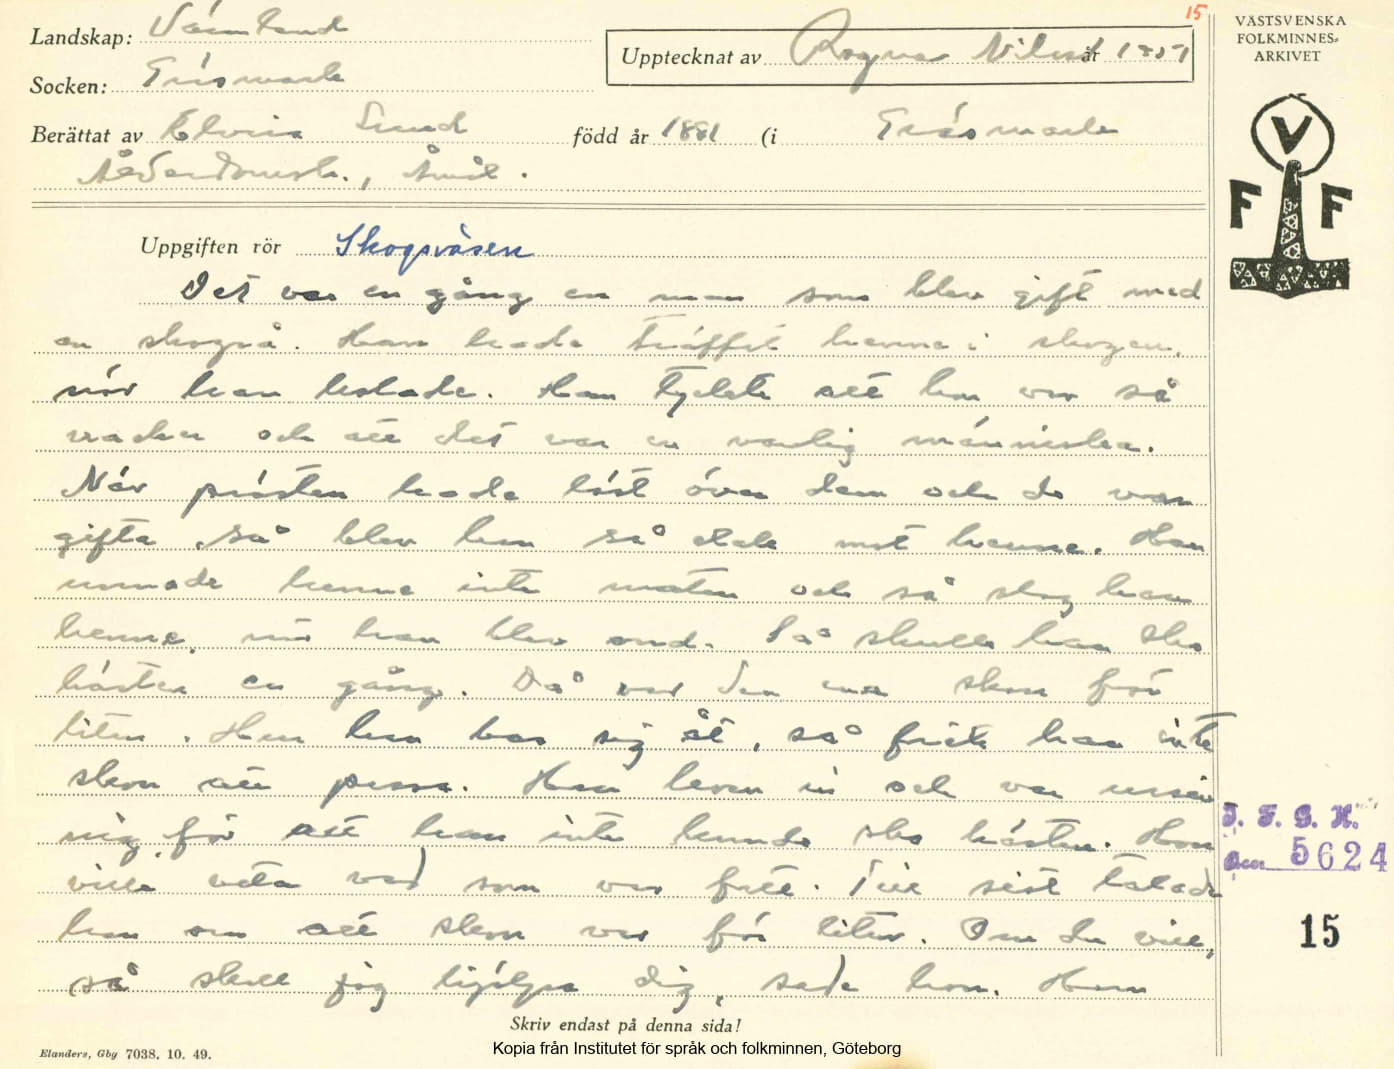 15
Landskap: Värmland
VÄSTSVENSKA
FOLKMINNES-
ARKIVET
Upptecknat av Ragnar Nilsson år 1951
Socken: Gräsmark
Berättat av Elvira Lund född år 1881 (i Gräsmark
Ålderdomsh., Åmål.
V
F F
Uppgiften rör Skogsväsen
Det var en gång en man som blev gift med
en skogsrå. Han hade träffat henne i skogen,
när han kolade. Han tyckte att hon var så
vacker och att det var en vanlig människa.
När prästen hade läst över dem och de var
gifta, så blev han så elak mot henne. Han
unnade henne inte maten och så slog han
henne, när han blev ond. Så skulle han sko
hästen en gång. Då var den ena skon för
liten. Hur han bar sig åt, så fick han inte
skon att passa. Han kom in och var ursin-
nig för att han inte kunde sko hästen. Hon
ville veta vad som var fatt. Till sist talade
han om att skon var för liten. Om du vill,
så skall jag hjälpa dig, sade hon. Hon
I. F. G. H.
5624
15
Skriv endast på denna sida!
Elanders, Gbg 7038. 10. 49.
Kopia från Institutet för språk och folkminnen, Göteborg